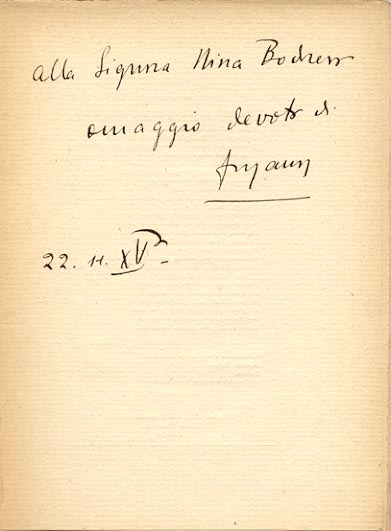 alla Signora Nina
omaggio devoto di
22. 11. XV